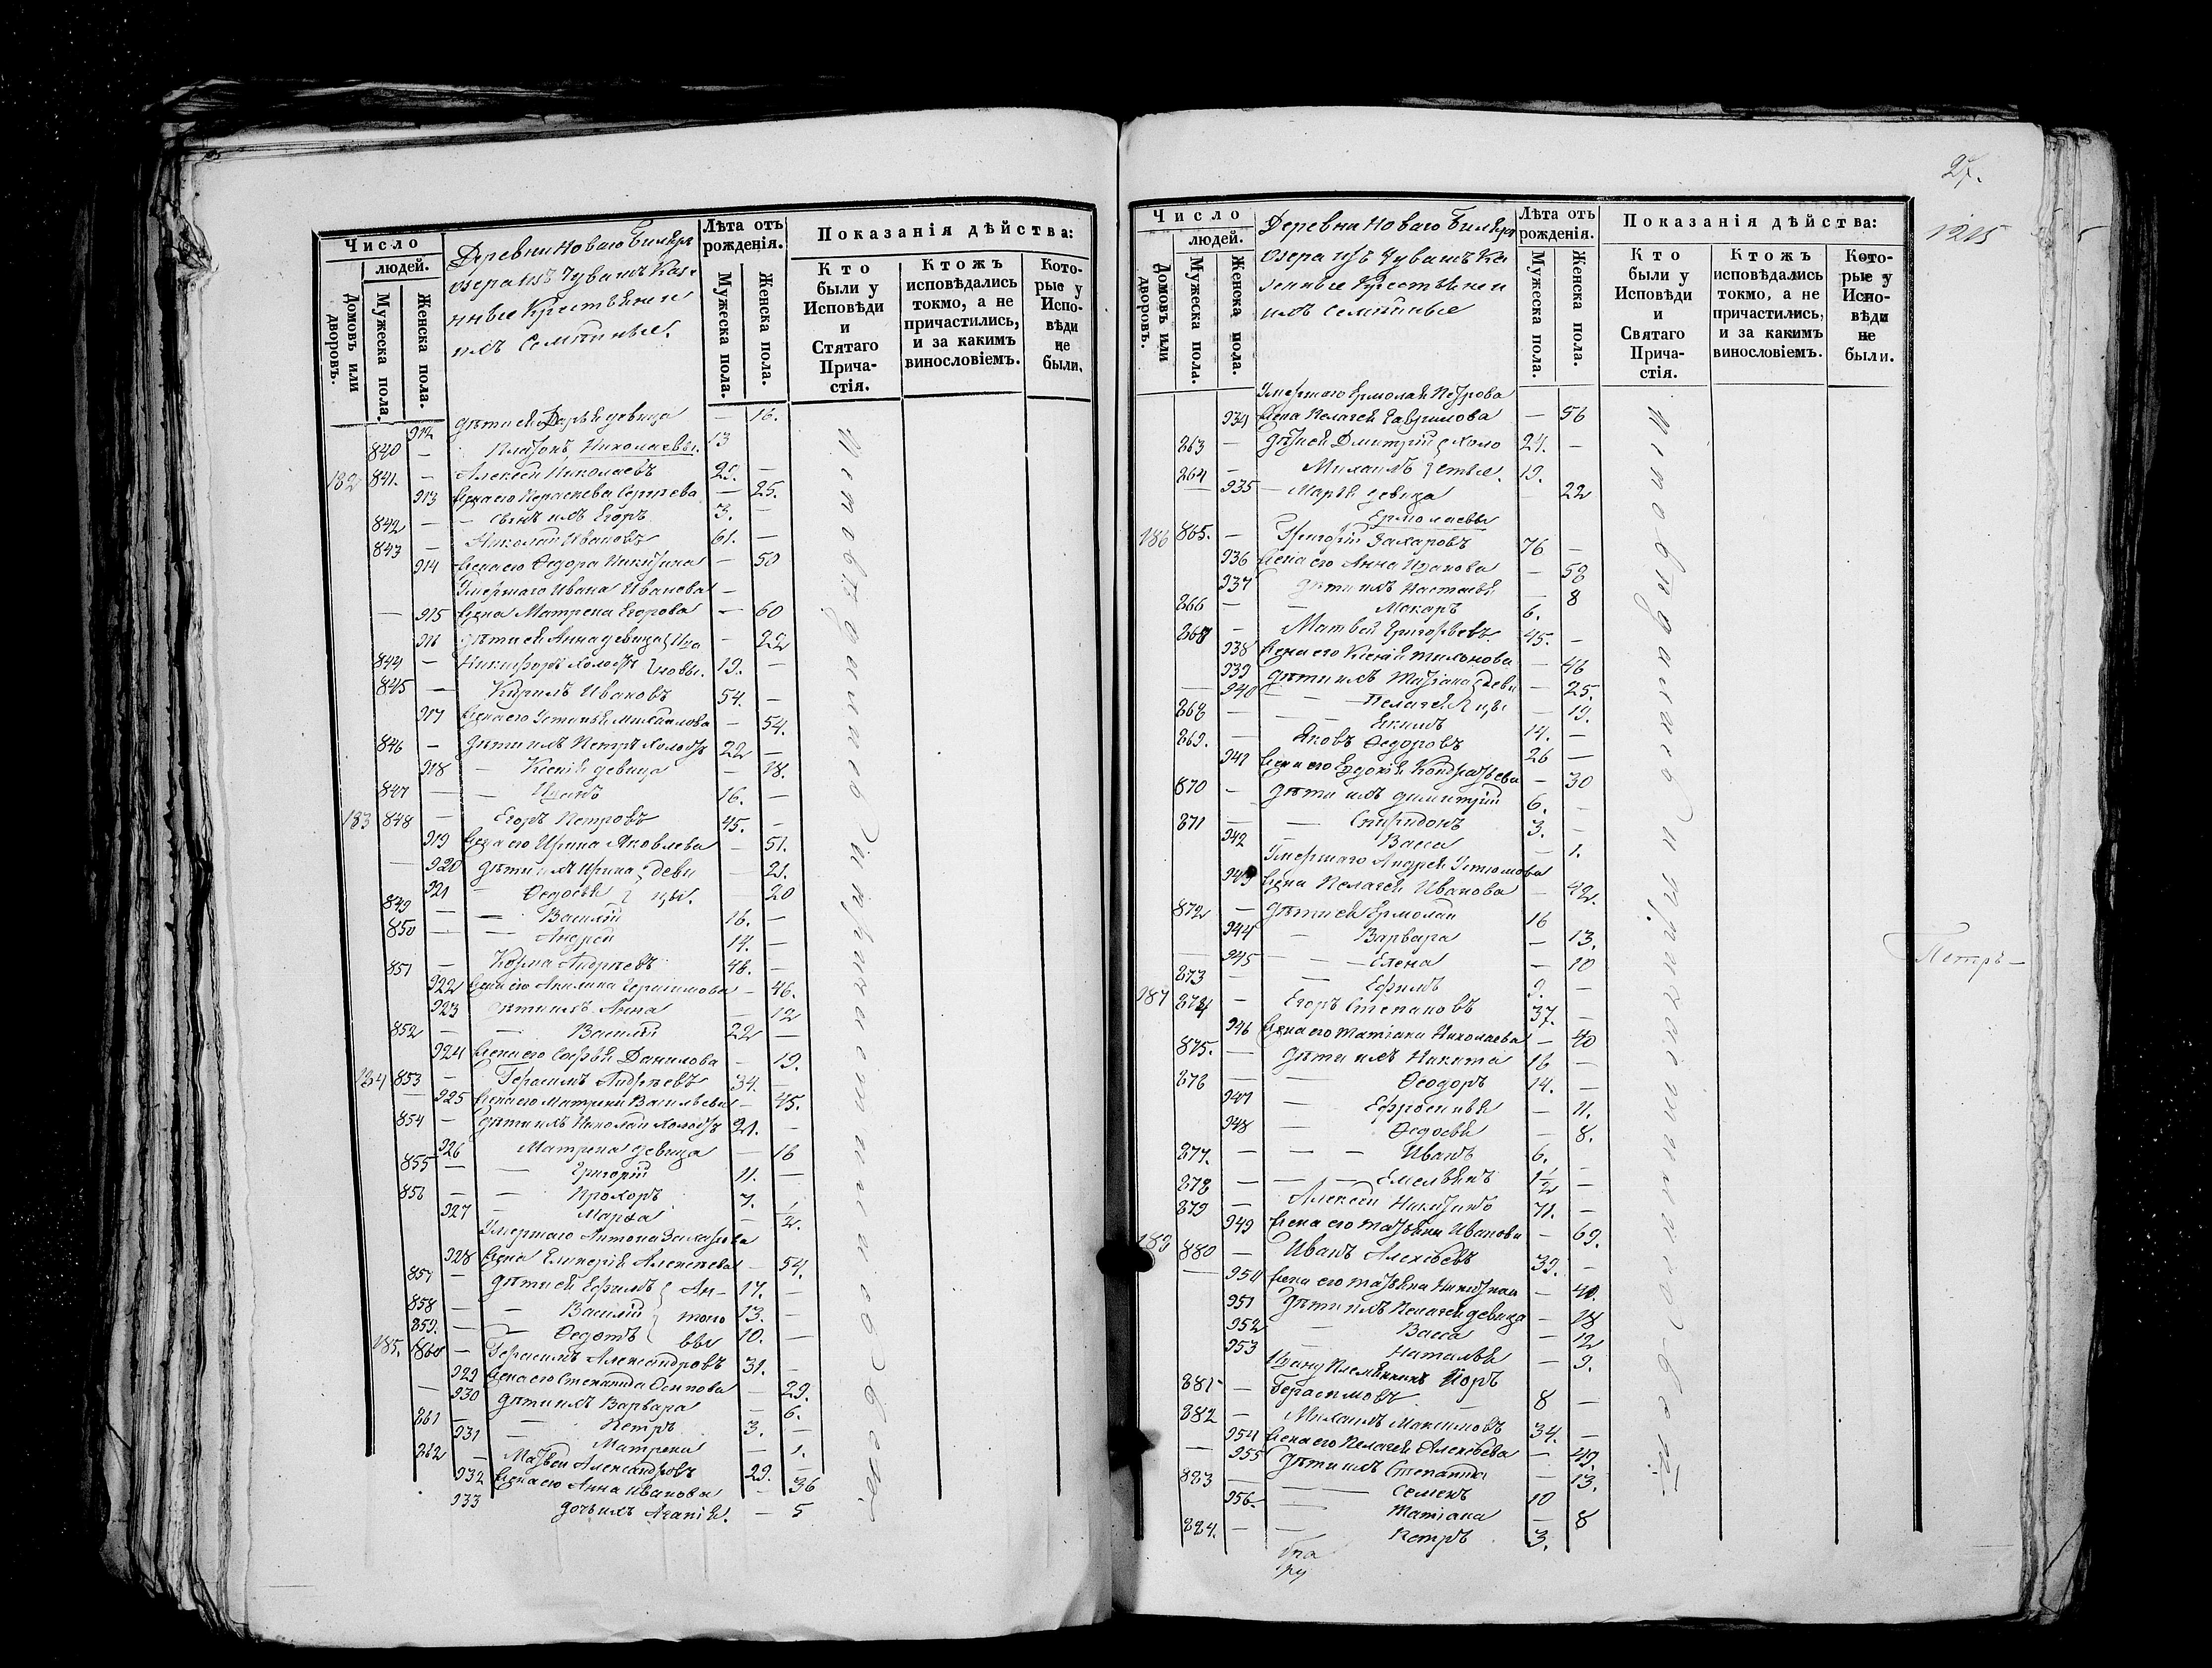 Число
людей.
Домовъ или дворовъ.
Мужеска пола.
Женска пола.
Деревни Новаго Биляръ
озера изъ Чувашъ Каз-
нные Крестьяне и
ихъ Семейные.
Лѣта отъ рожденія.
Мужеска пола.
Женска пола.
Показанія дѣйства:
Кто были у Исповѣди и Стятаго Прича-стія.
Ктожъ исповѣдались токмо, а не причастились, и за какимъ винословіемъ.
Кото-рые у Испо-вѣди не были.
912 дѣти ей Дарья девица — 16.
840 — Платонъ Николаевы. 13
182 841. — Алексей Николаевъ 25. —
913 Жена его Пераскева Сергѣева — 25.
842 — — сынъ ихъ Егоръ 3. —
843 — Николай Ивановъ 61. —
914 Жена его Ѳедора Никитина — 50
Умершаго Ивана Иванова —
— 915 Жена Матрена Егорова — 60
916 дѣти ей Анна девица Ива — 22
844 — Никифоръ холостъ новы. 19. —
845 — Кирилъ Ивановъ 54. —
917 Жена его Устинья Михайлова — 54.
846 — дѣти ихъ Петръ холостъ 22 —
918 — Ксенія девица — 18.
847 — — Иванъ 16. —
183 848 — Егоръ Петровъ 45. —
919 Жена его Ирина Яковлева — 51.
— 920 дѣти ихъ Ирина деви — 21.
921 — Ѳедосья цы. 20
849 — — Василій 16. —
850 — — Андрей 14. —
851 — Козма Андрѣевъ 48. —
922 Жена его Акилина Герасимова — 46.
923 дѣти ихъ Анна — 12
852 — — Василій 22 —
924 Жена его Софья Данилова — 19.
184 853 — Герасимъ Андрѣевъ 34. —
— 925 Жена его Матрена Васильева — 45.
854 — дѣти ихъ Николай холостъ 21. —
926 Матрена девица — 16
855 — — Григорій 11. —
856 — — Прохоръ 7. —
927 — Марѳа — 1/2.
Умершаго Антона Захарова
928 Жена Гликерія Алексѣева — 54.
857 — дѣти ей Ефимъ Ан- 17. —
858 — — Василій тоно 13. —
859. — — Ѳедотъ вы 10. —
185. 860 — Герасимъ Александровъ 31. —
929 Жена его Степанида Осипова — 29.
— 930 дѣти ихъ Варвара — 6.
861 — — Петръ 3. —
931 — Матрена — 1.
862 — Матвей Александровъ 29. —
932 Жена его Анна Иванова — 36
933 дочь ихъ Агапія. — 5
Исповѣдались и причастились Всѣ
27.
1215
Число
людей.
Домовъ или дворовъ.
Мужеска пола.
Женска пола.
Деревни Новаго Биляръ
озера изъ Чувашъ Ка
зенные Крестьяне и
ихъ семейные
Лѣта отъ рожденія.
Мужеска пола.
Женска пола.
Показанія дѣйства:
Кто были у Исповѣди и Святаго Прича-стія.
Ктожъ исповѣдались токмо, а не причастились, и за какимъ винословіемъ.
Кото-рые у Испо-вѣди не были.
Умершаго Ермолая Петрова
934 Жена Пелагея Гаврилова — 56
863 — дѣти ей Дмитрій холо 24. —
864 — Михаилъ стые. 19.
— 935 — Марья девица — 22
Ермолаевы
186 865. — Григорій Захаровъ 76 —
936 Жена его Анна Иванова — 58
937 дѣти ихъ Настасья — 8
866 — — Макаръ 6.
867 — Матвей Григорьевъ 45. —
938 Жена его Ксенія Тихонова — 46
939 дѣти ихъ Татіана деви — 25.
— 940 — Пелагея цы — 19.
868 — — Екимъ 14. —
869. — Яковъ Ѳедоровъ 26 —
941 Жена его Евдокія Кондратьева — 30
870 — дѣти ихъ Димитрій 6. —
871 — — Спиридонъ 3. —
942 — Васса — 1.
Умершаго Андрея Устюмова
943 Жена Пелагея Иванова — 42.
872 — дѣти ей Ермолай 16
944 — Варвара — 13.
— 945 — Елена — 10
873 — — Ефимъ 9. —
187 874 — Егоръ Степановъ 37. —
946 Жена его Татіана Николаева — 40
875. — дѣти ихъ Никита 16 —
876 — — Ѳеодоръ 14. —
947 — Ефросинья — 11.
948 — Ѳедосья — 8.
877. — — Иванъ 6. —
878 — — Емельянъ 1 1/2 —
879 — Алексей Никитинъ 71. —
949 Жена его Татьяна Иванова — 69.
188 880 — Иванъ Алексѣевъ 39. —
— 950 Жена его Татьяна Никитина — 40.
951 дѣти ихъ Пелагея девица — 18
952 — Васса — 12
953 — Наталья — 9.
Ивану Племянникъ Егоръ
881 — Герасимовъ — 8 —
882 — Михаилъ Максимовъ 34. —
954 Жена его Пелагея Алексѣева — 40.
— 955 дѣти ихъ Степанида — 13.
883 — — Семенъ 10
956. — Татіана — 8
884. — — Петръ 3.
Исповѣдались и причастились Всѣ
Петръ